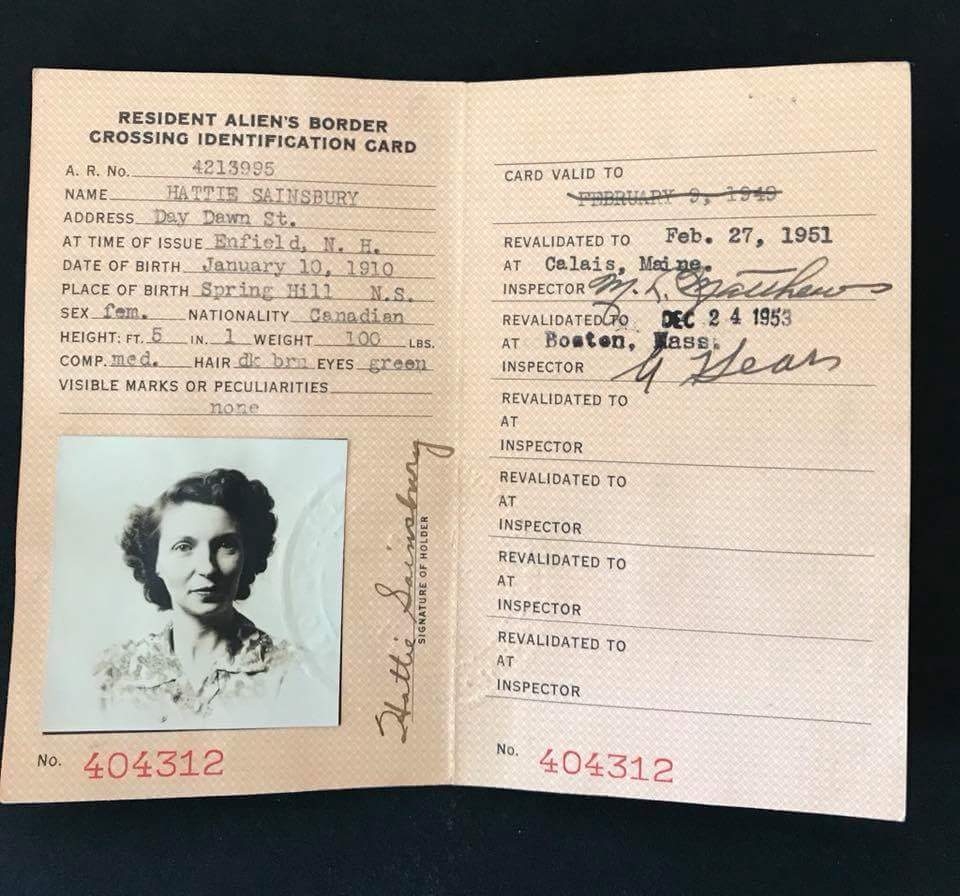 RESIDENT ALIEN'S BORDER
CROSSING IDENTIFICATION CARD
A. R. No. 4213995
NAME HATTIE SAINSBURY
ADDRESS Day Dawn St.
AT TIME OF ISSUE Enfield, N. H.
DATE OF BIRTH January 10, 1910
PLACE OF BIRTH Spring Hill N.S.
SEX fem. NATIONALITY Canadian
HEIGHT: FT. 5 IN. 1 WEIGHT 100 LBS.
COMP. med. HAIR dk brn EYES green
VISIBLE MARKS OR PECULIARITIES
none
Hattie Sainsbury
SIGNATURE OF HOLDER
No. 404312
CARD VALID TO
FEBRUARY 9, 1949
REVALIDATED TO Feb. 27, 1951
AT Calais, Maine.
INSPECTOR M. L. Matthews
REVALIDATED TO DEC 24 1953
AT Boston, Mass.
INSPECTOR
REVALIDATED TO
AT
INSPECTOR
REVALIDATED TO
AT
INSPECTOR
REVALIDATED TO
AT
INSPECTOR
REVALIDATED TO
AT
INSPECTOR
No. 404312